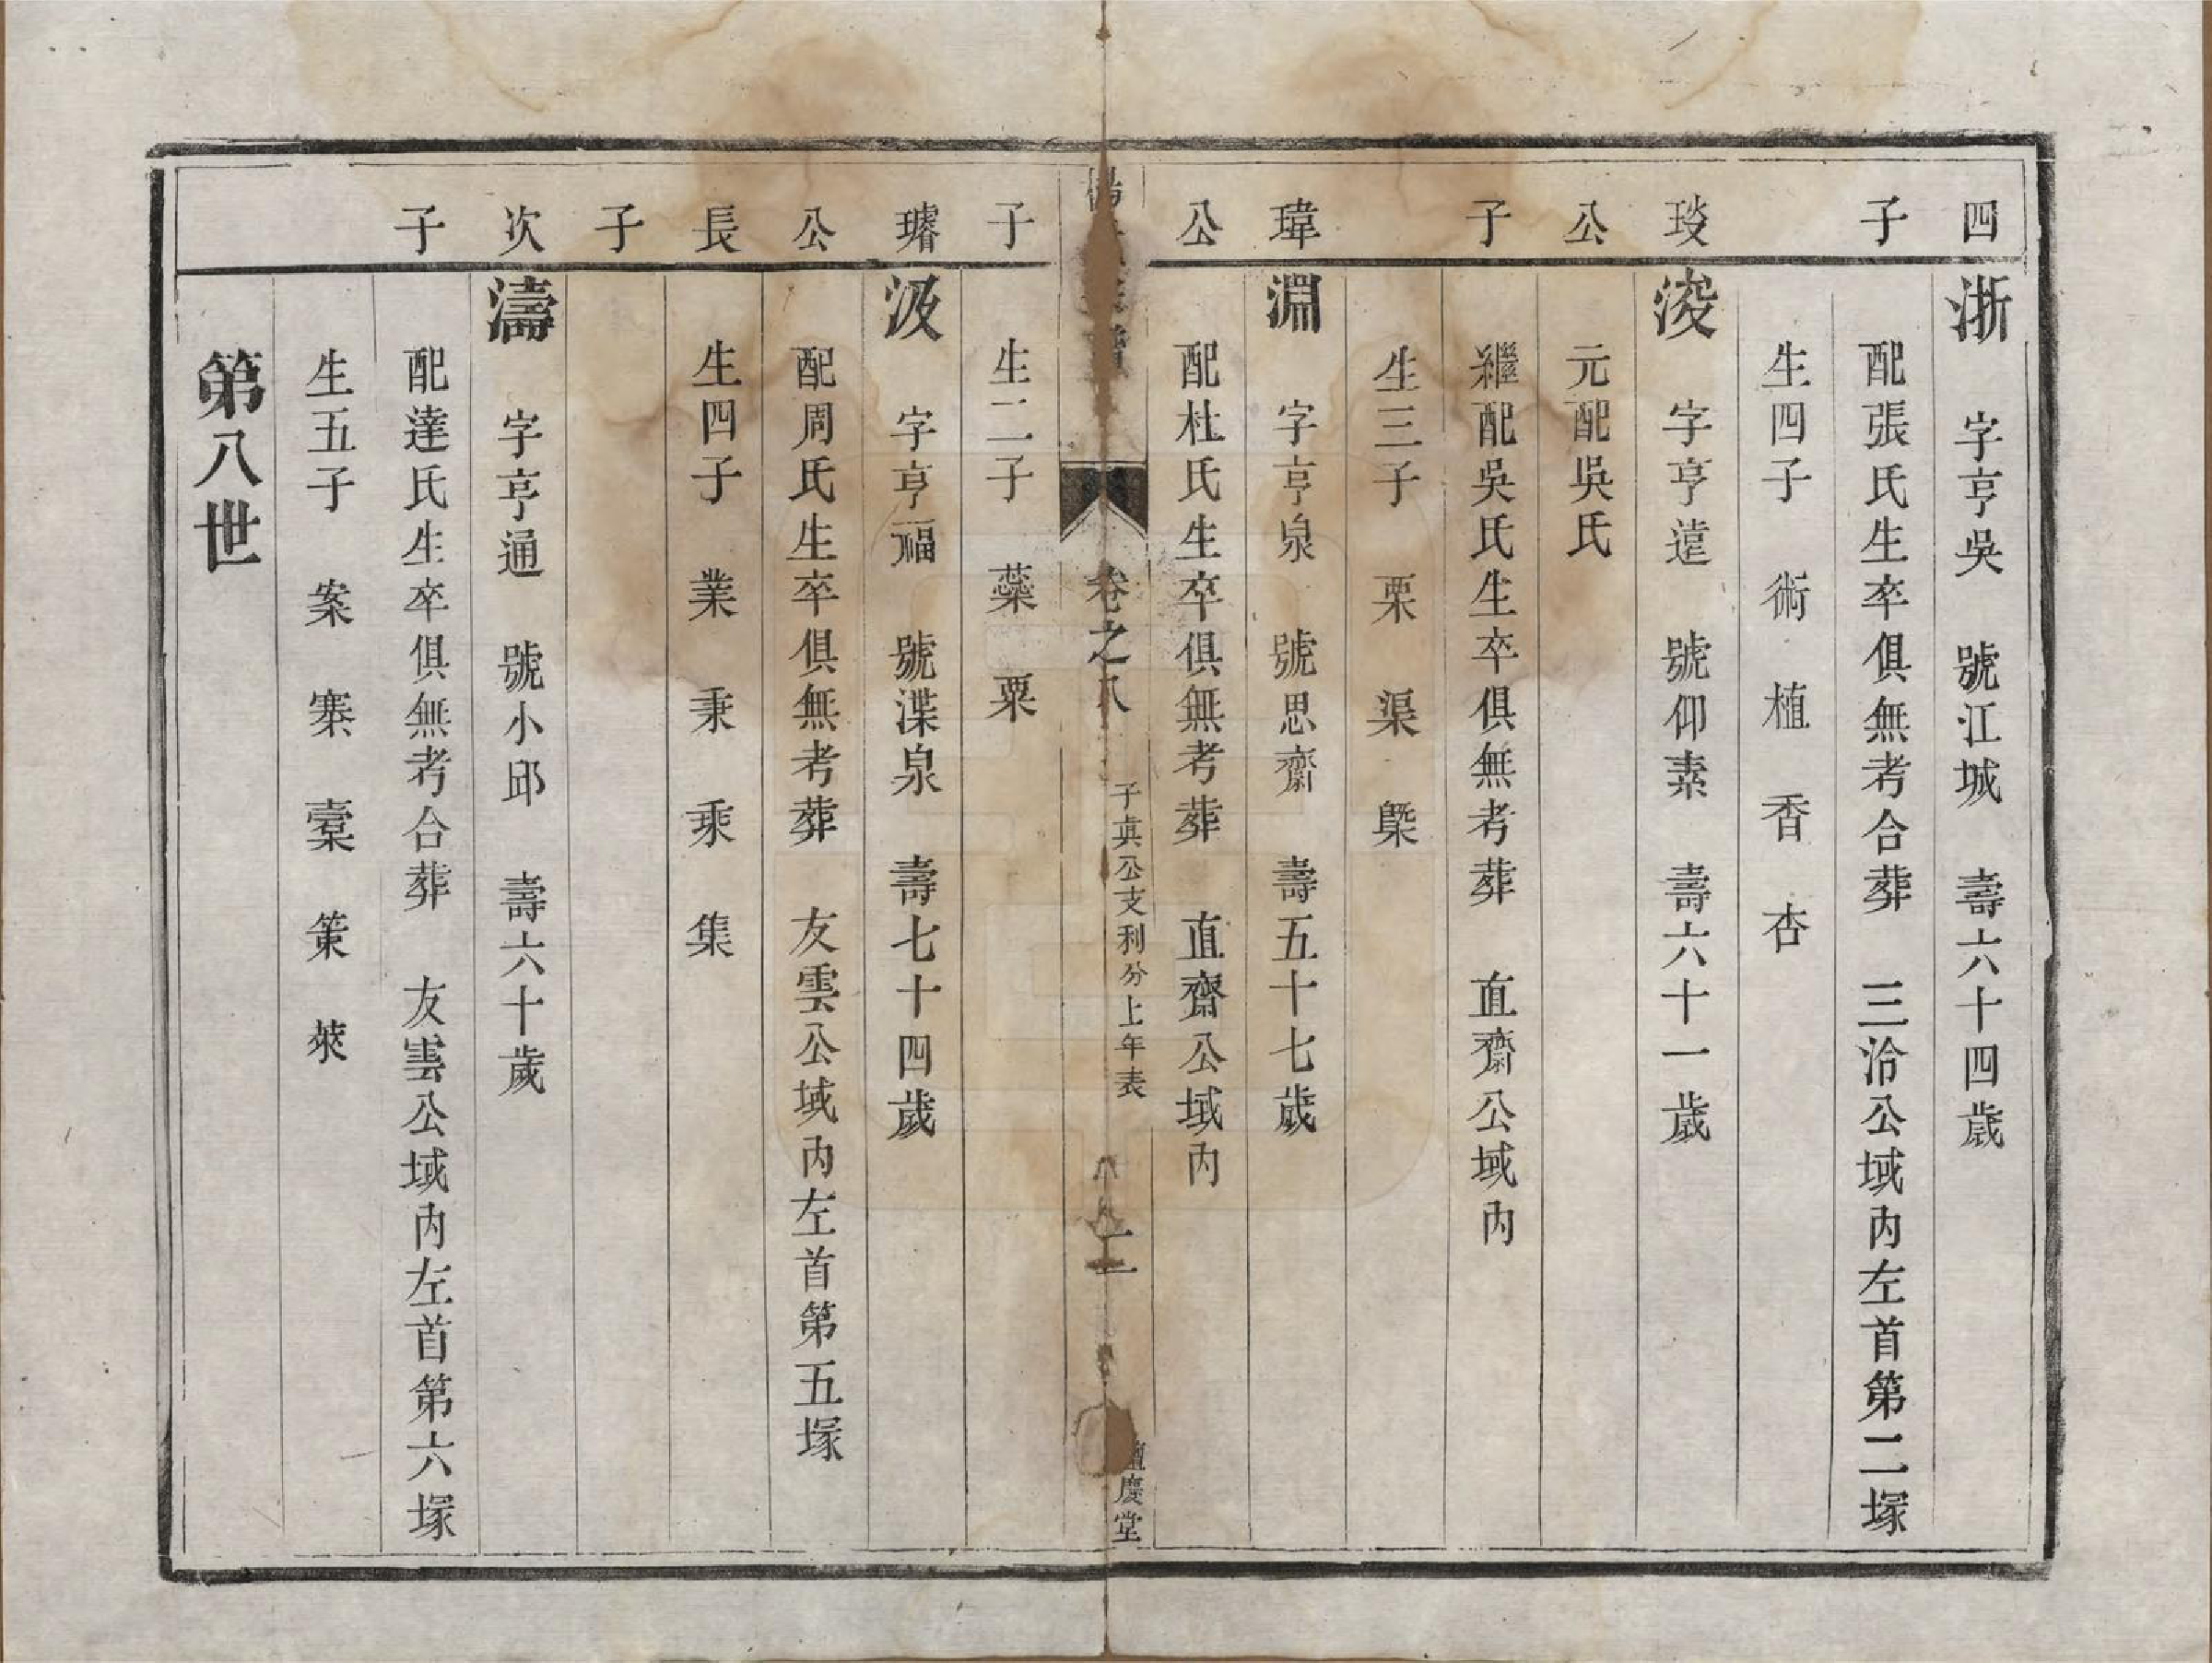 四
浙 字亨吳 號江城 壽六十四歲
子
配張氏生卒俱無考合葬 三洽公域內左首第二塚
生四子 術 植 香 杏
琰
浚 字亨遠 號仰素 壽六十一歲
公
元配吳氏
子
繼配吳氏生卒俱無考葬 直齋公域內
生三子 栗 渠 槩
瑋
淵 字亨泉 號思齋 壽五十七歲
公
配杜氏生卒俱無考葬 直齋公域內
卷之八 子眞公支利分上年表
慶堂
子
生二子 蘂 粟
璿
汲 字亨福 號渫泉 壽七十四歲
公
配周氏生卒俱無考葬 友雲公域內左首第五塚
長
生四子 業 秉 乘 集
子
次
濤 字亨通 號小邱 壽六十歲
子
配達氏生卒俱無考合葬 友雲公域內左首第六塚
生五子 案 寨 橐 策 萊
第八世